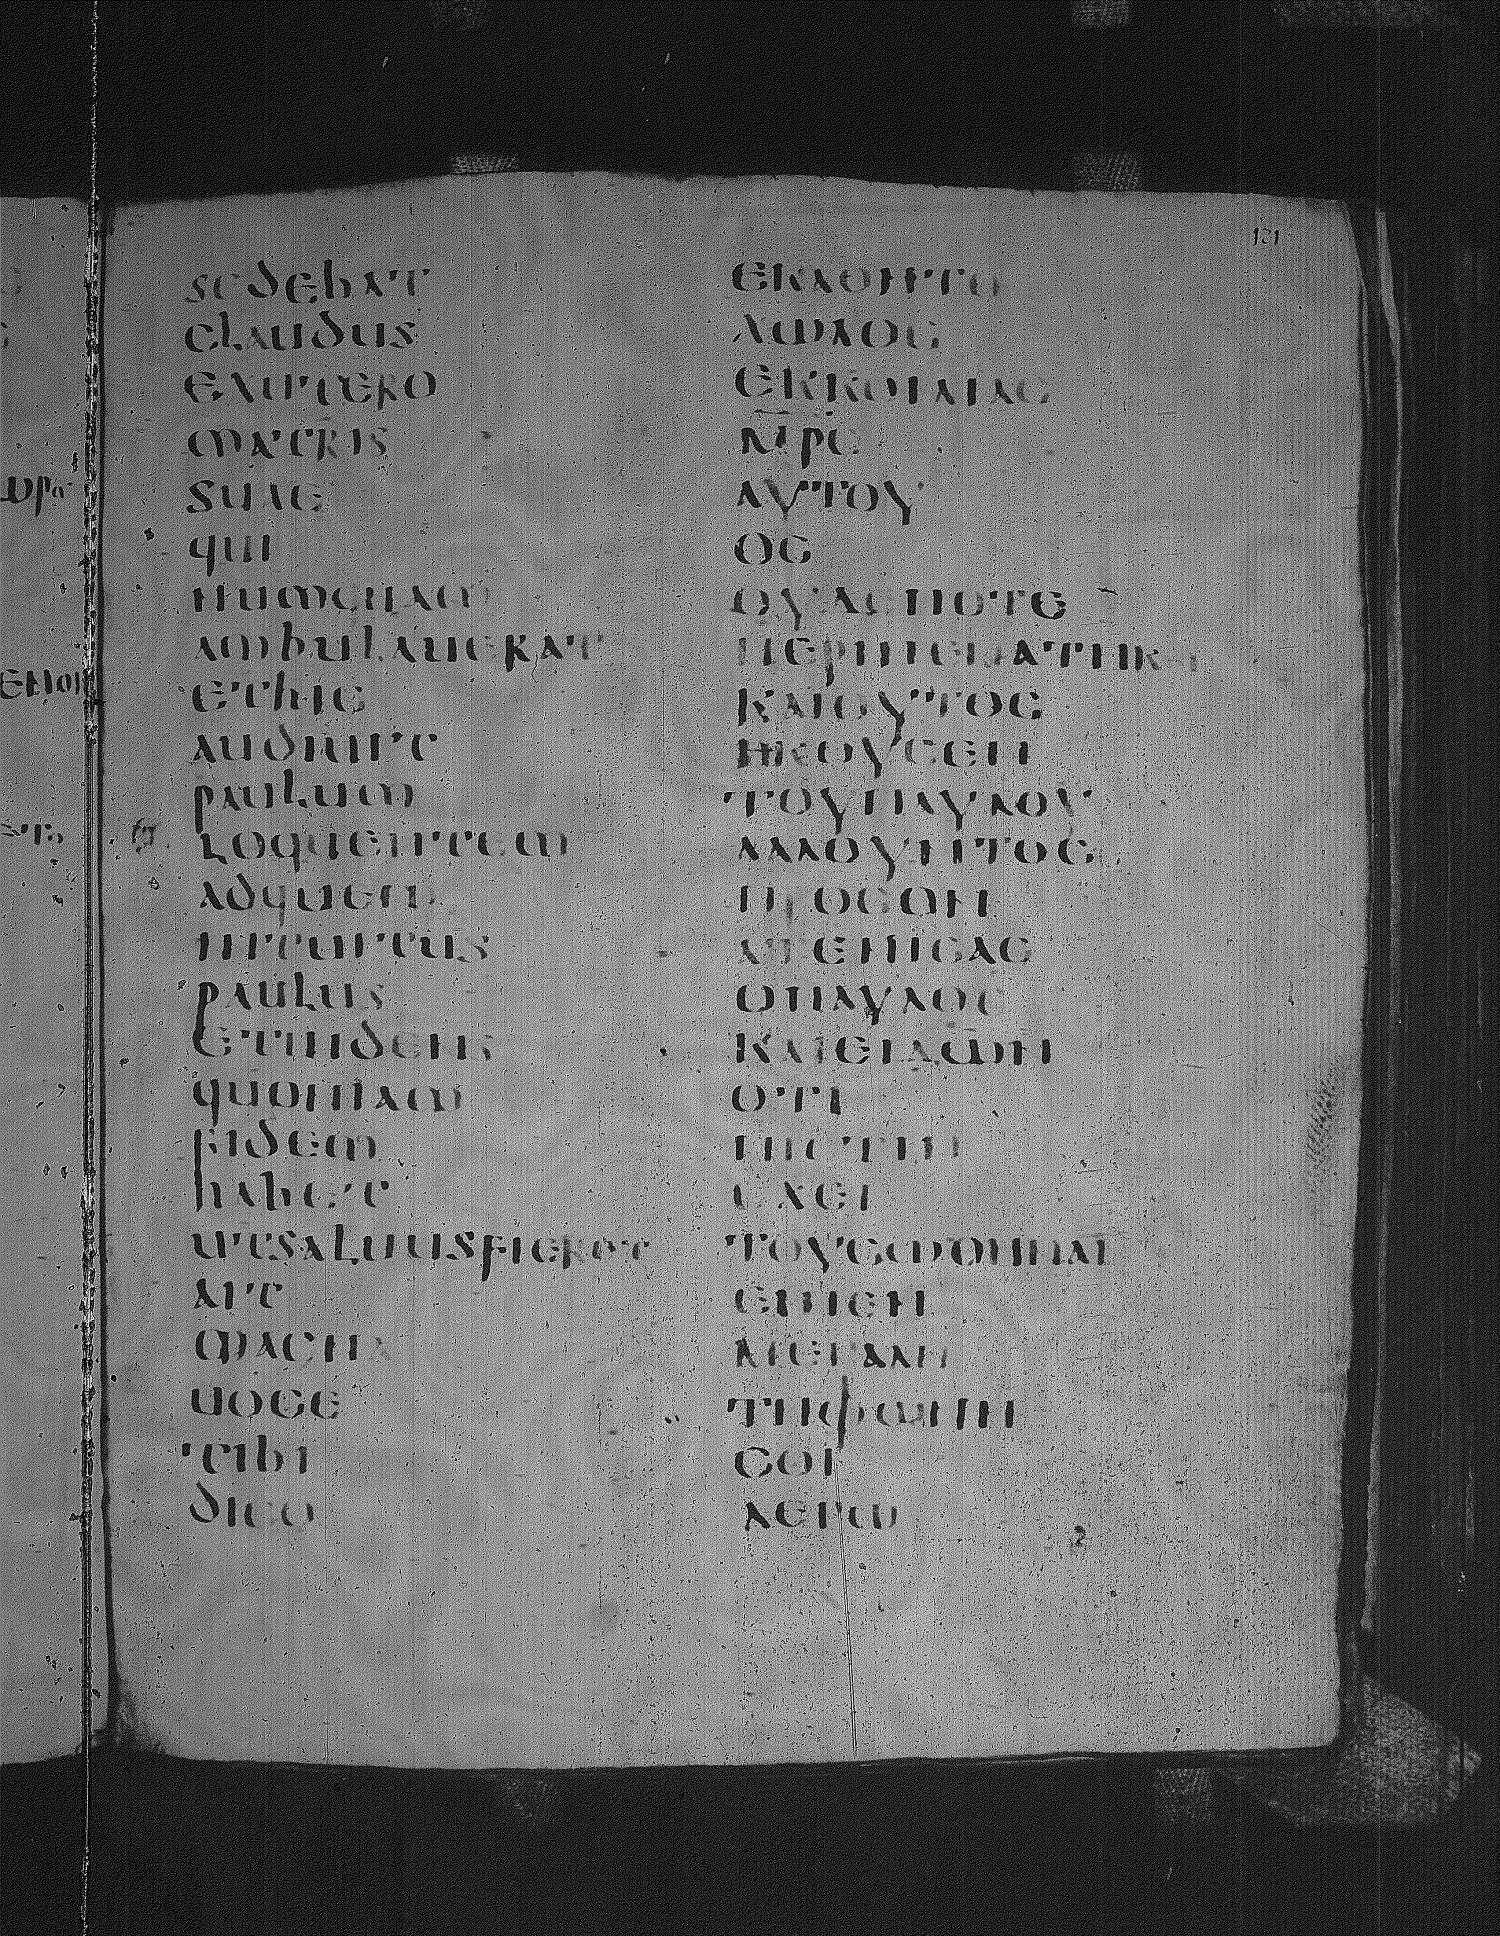 sedebat
claudus
exutero
matris
suae
qui
numquam
ambulauerat
ethic
audiuit
paulum
loquentem
adquem
intuitus
paulus
etuidens
quoniam
fidem
habet
utsaluusfieret
ait
magna
uoce
tibi
dico
121
ΕΚΑΘΗΤΟ
ΧΩΛΟϹ
ΕΚΚΟΙΛΙΑϹ
Μ̅Ρ̅Ϲ
ΑΥΤΟΥ
ΟϹ
ΟΥΔΕΠΟΤΕ
ΠΕΡΙΠΕΠΑΤΗΚΕΙ
ΚΑΙΟΥΤΟϹ
ΗΚΟΥϹΕΝ
ΤΟΥΠΑΥΛΟΥ
ΛΑΛΟΥΝΤΟϹ
ΠΡΟϹΟΝ
ΑΤΕΝΙϹΑϹ
ΟΠΑΥΛΟϹ
ΚΑΙΕΙΔΩΝ
ΟΤΙ
ΠΙϹΤΙΝ
ΕΧΕΙ
ΤΟΥϹΩΘΗΝΑΙ
ΕΙΠΕΝ
ΜΕΓΑΛΗ
ΤΗΦΩΝΗ
ϹΟΙ
ΛΕΓΩ